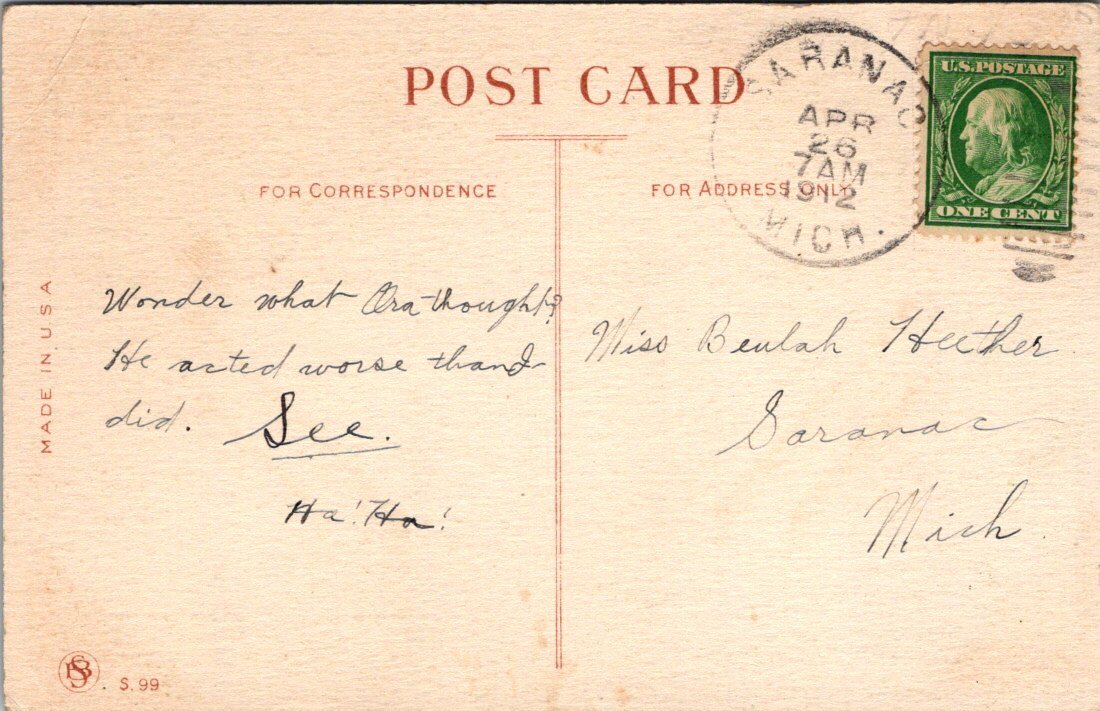 POST CARD
FOR CORRESPONDENCE
FOR ADDRESS ONLY
SARANAC
APR
26
7 AM
1912
MICH.
U.S. POSTAGE
ONE CENT
MADE IN U S A
Wonder what Ora thought?
He acted worse than I
did. See.
Ha! Ha!
Miss Beulah Heether
Saranac
Mich.
S. 99